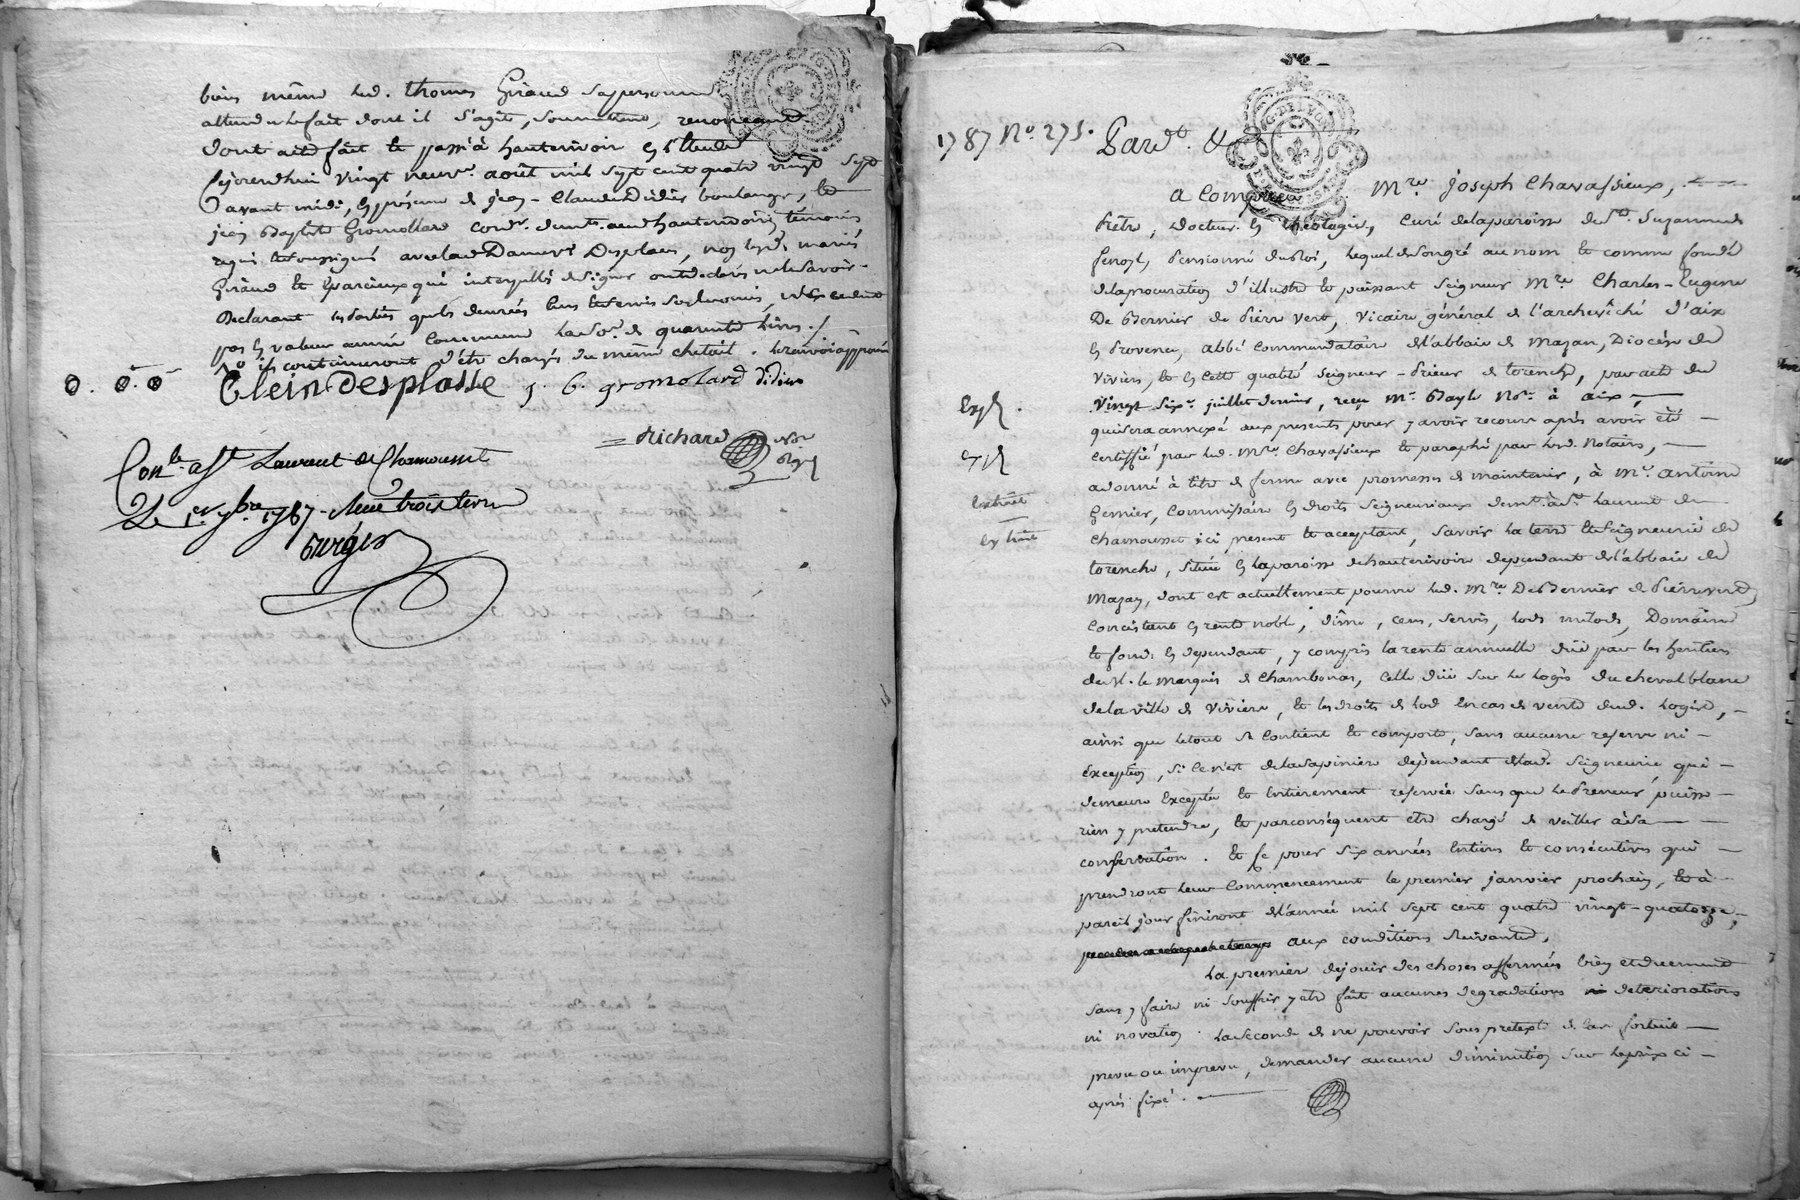 biens même led. thomas Giraud sa personne
attendu le fait dont il s'agit, soumettant, renonceant
dont acte fait et passé à hauterivoir en l'étude
cejourdhui vingt neuv.e août mil sept cent quatre vingt sept
avant midi, en présence de jean-Claude Didier boulanger, et
jean Baptiste Gromollard cord.r demt. aud. hauterivoir, témoins
requis et soussignés avec lad. Dame Desplaces, non lesd. mariés
Giraud et parcieux qui interpellés de signer ont declaré ne le savoir.
Declarant les parties que les denrées
pas en valeur année Commune la so.e de quarante livres./.
ils continueront d'être chargés du même cheptail. le renvoi approuvé
Clein Desplasse j. b. gromolard didier
Richard Nore
Royal
Con.le à St Laurent de Chamousset
Le 1er 7bre 1787. Reçu trois livres
Burgier
1787 No. 275. Pardt. &
A Comparu Mre. Joseph Chavassieux,
Prêtre, Docteur en théologie, Curé de la paroisse de Ste. Suzanne
pensionné du Roi, lequel de son gré au nom et comme fondé
de la procuration d'illustre et puissant Seigneur Mre Charles-Eugene
De Bernier de Pierre vert, vicaire général de l'archevêché d'aix
en Provence, abbé Commandataire de l'abbaïe de Mazan, Diocèse de
Viviers, et en cette qualité seigneur-Prieur de torenche, par acte du
vingt sixe. juillet dernier, reçu Me. Bayle Nore. à aix,
qui sera annexé aux presents pour y avoir recours après avoir été
certiffié par led. Mre Chavassieux et paraphé par led. Notaire,
a donné à titre de ferme avec promesse de maintenir, à Me. antoine
Gernier, Commissaire en droits Seigneuriaux demt. à St. Laurent de
Chamousset ici present et acceptant, savoir la terre et seigneurie de
torenche, située en la paroisse de hauterivoir dependant de l'abbaïe de
Mazan, dont est actuellement pourvu led. Mre De Bernier de Pierrevert,
Concistant en rente noble, dîme, cens, servis, lods milods, Domaine
et fonds en dependant, y compris la rente annuelle düe par les heritiers
de M. le Marquis de Chambonas, celle düe sur le Logis du cheval blanc
de la ville de Viviers, et les droits de lod en cas de vente dud. Logis,
ainsi que le tout se contient et comporte, sans aucune reserve ni
exception, si ce n'est de la sapiniere dépendant de lad. seigneurie qui
demeure exceptée et entierement reservée sans que le Preneur puisse
rien y pretendre, et parconséquent être chargé de veiller à sa
conservation. et ce pour six années entieres et consécutives qui
prendront leur Commencement le premier janvier prochain, et à
pareil jour finiront de l'année mil sept cent quatre vingt-quatorze,
aux conditions suivantes,
La premiere de jouir des choses affermées bien et duement
sans y faire ni souffrir y être fait aucunes degradations ni deteriorations
ni novation. La seconde de ne pouvoir sous pretexte de cas fortuit
prevu ou imprevu, demander aucune diminution sur le prix ci-
après fixé.
extrait
extrait